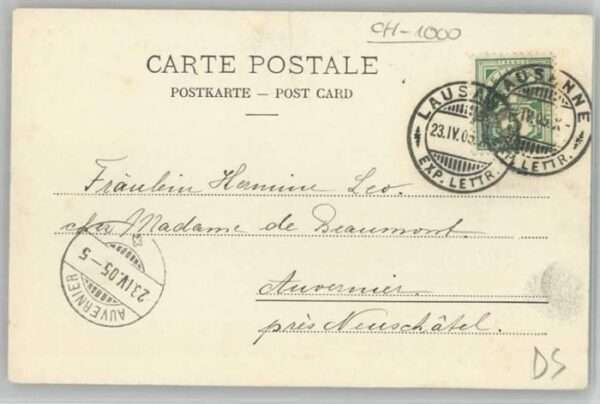 CH-1000
CARTE POSTALE
POSTKARTE — POST CARD
LAUSANNE
23.IV.05
EXP. LETTR.
LAUSANNE
IV.05
LETTR.
Fräulein Hermine Leo.
chez Madame de Beaumont.
Auvernier.
près Neuschâtel.
AUVERNIER
23.IV.05—5
DS